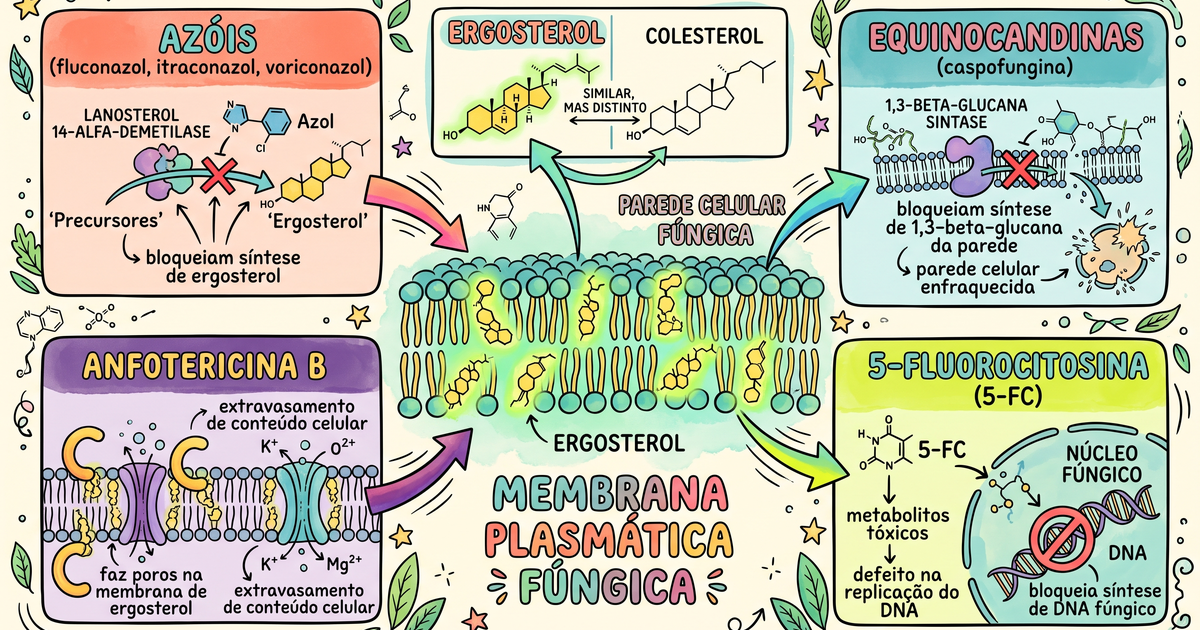 AZÓIS
(fluconazol, itraconazol, voriconazol)
LANOSTEROL
14-ALFA-DEMETILASE
N
N
Azol
Cl
HO
'Precursores'
'Ergosterol'
bloqueiam síntese
de ergosterol
ERGOSTEROL
COLESTEROL
H
H
H
H
HO
SIMILAR,
MAS DISTINTO
HO
EQUINOCANDINAS
(caspofungina)
1,3-BETA-GLUCANA
SINTASE
HO
HO
OH
bloqueiam síntese
de 1,3-beta-glucana
da parede
parede celular
enfraquecida
O
HN
PAREDE CELULAR
FÚNGICA
ERGOSTEROL
MEMBRANA
PLASMÁTICA
FÚNGICA
ANFOTERICINA B
extravasamento
de conteúdo celular
K+
O2+
K+
Mg2+
faz poros na
membrana de
ergosterol
extravasamento
de conteúdo celular
5-FLUOROCITOSINA
(5-FC)
O
H
N
O
N
H
5-FC
metabolitos
tóxicos
defeito na
replicação do
DNA
NÚCLEO
FÚNGICO
DNA
bloqueia síntese
de DNA fúngico